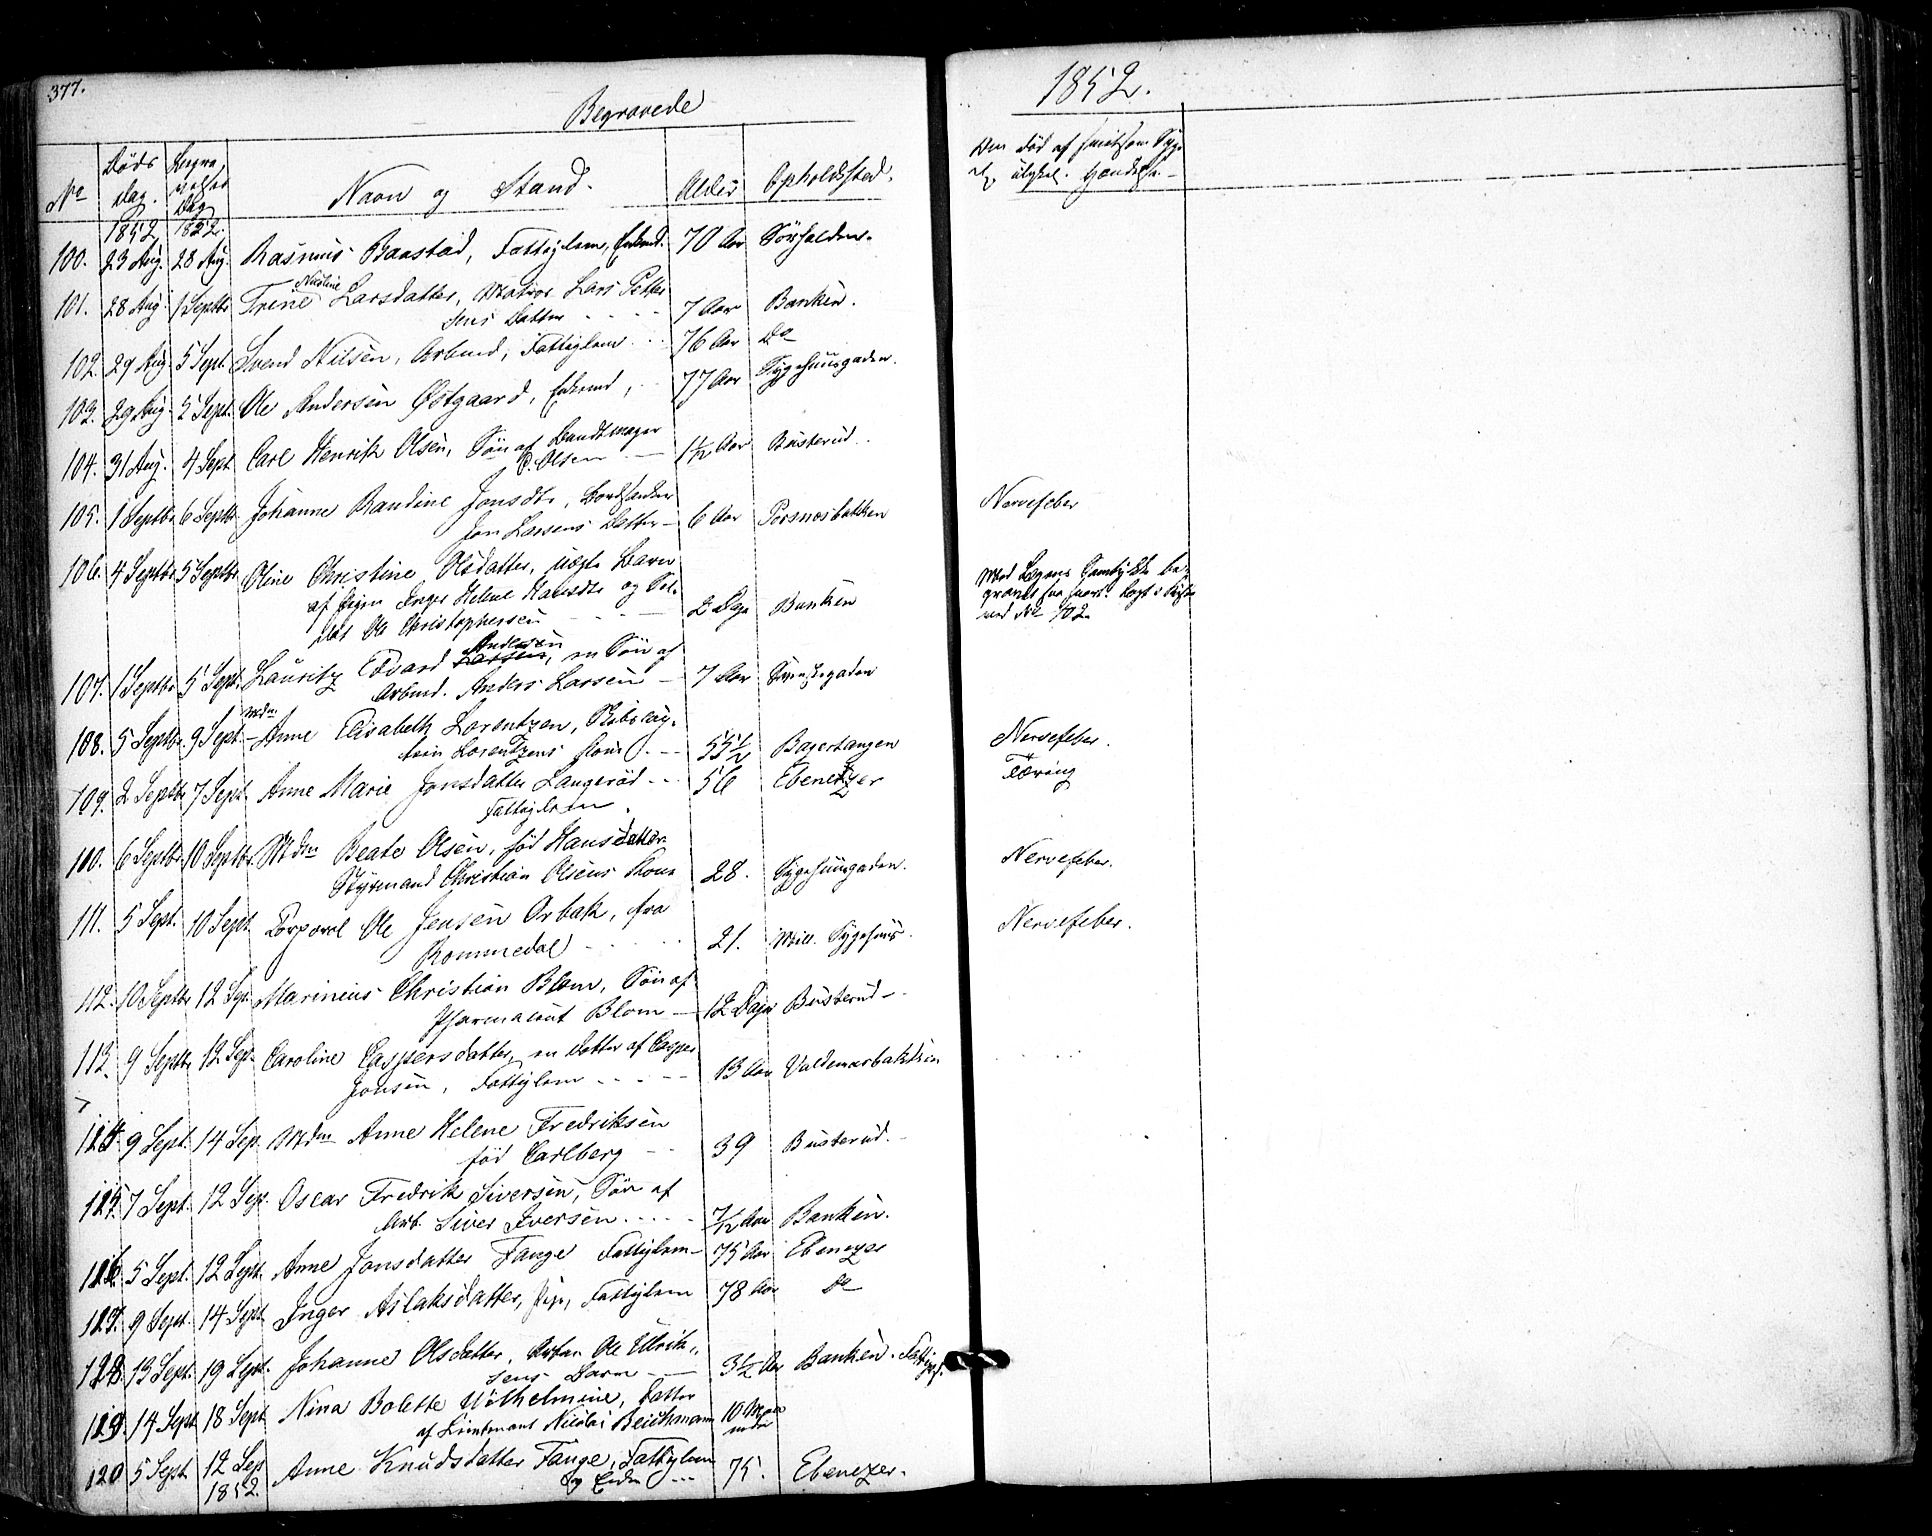 377.
Begravede
1852.
No
Døds Dag.
Begravelses Dag
Navn og Stand.
Alder
Opholdssted.
Om død af smitsom Syge
el. ulykel. Hændelse.
1852 1852
100. 23 Aug. 28 Aug. Rasmus Baastad, Fattiglem, Enkmd. 70 Aar
101. 28 Aug. 1 Septbr Trine Nicoline Larsdatter, Matros Lars Petter
sens Datter 7 Aar Banken.
102. 29 Aug 5 Sept. Svend Nilsen, Arbmd, Fattiglem 76 Aar Do
103. 29 Aug. 5 Sept. Ole Andersen Østgaard, Enkemd, 77 Aar Sygehuusgaden.
104. 31 Aug. 4 Sept Carl Henrik Olsen, Søn af Bundtmager
C. Olsen 1½ Aar Busterud.
105. 1 Septbr 6 Septbr. Johanne Randine Jonsdtr, Bordskriver
Jon Larsens Datter 6 Aar Porsnesbakken Nervefeber
106. 4 Septbr 5 Septbr. Oline Christine Olsdatter, uægte Barn
af Pigen Inger Helene Hansdtr og Sol-
dat Ole Christophersen 2 Dage Banken
Med Lægens Samtykke be-
gravet saa snart. Lagt i Kiste
med No 102.
107. 1 Septbr 5 Sept. Lauritz Edvard Larsen Andersen, en Søn af
Arbmd. Anders Larsen 7 Aar
108. 5 Septbr. 9 Sept. Mdm. Anne Elisabeth Lorentzen, Skibscap-
tein Lorentzens Kone 55½ Bagertangen Nervefeber.
109. 2 Septbr 7 Sept. Anne Marie Jonsdatter Langerød 56 Ebenetzer Tæring
Fattiglem.
100. 6 Septbr. 10 Septbr. Mdm Beate Olsen, fød Hansdatter
Styrmand Christian Olsens Kone 28. Sygehuusgaden. Nervefeber.
111. 5 Sept. 10 Sept. Corporal Ole Jensen Orbak, fra
Rommedal 21. Mill. Sygehuus. Nervefeber.
112. 10 Septbr 12 Sep. Marineus Christian Blom, Søn af
Pharmaceut Blom 12 Dage Busterud
113. 9 Septbr 12 Sep. Caroline Caspersdatter, en Datter af Casper
Jonsen, Fattiglem 13 Aar Valdemarbakken
114. 9 Sept. 14 Sep. Mdm Anne Helene Fredriksen
fød Carlberg 39 Busterud.
115. 7 Sept. 12 Sep. Oscar Fredrik Siversen, Søn af
Arb. Siver Iversen 7/12 Aar Banken.
116. 5 Sept. 12 Sept. Anne Jonsdatter Tange Fattiglem 75 Aar Ebenezer
117. 9 Sept. 14 Sept. Inger Aslaksdatter, Pige, Fattiglem 78 Aar Do
118. 13 Sept. 19 Sept. Johanne Olsdatter, Arbm. Ole Ullrik-
sens Barn 3½ Aar Banken.
119. 14 Sept 18 Sept Nina Bolette Wilhelmine, Datter
af Lieutenant Nicolai Beichmann 10 Maaneder
120 5 Sept 12 Sep Anne Knudsdatter Tange, Fattiglem
og Enke 75. Ebenezer.
1852.